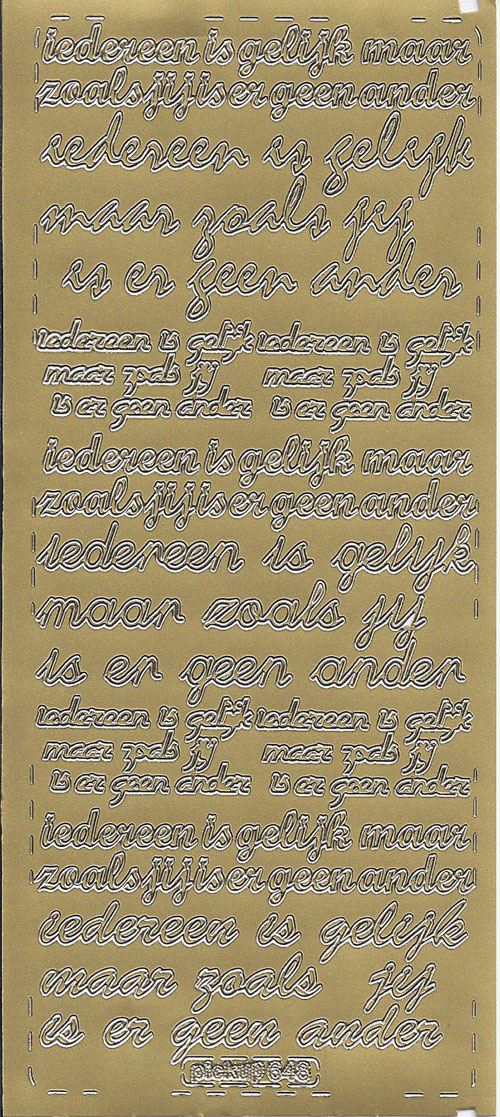 iedereen is gelijk maar
zoals jij is er geen ander
iedereen is gelijk
maar zoals jij
is er geen ander
iedereen is gelijk iedereen is gelijk
maar zoals jij maar zoals jij
is er geen ander is er geen ander
iedereen is gelijk maar
zoals jij is er geen ander
iedereen is gelijk
maar zoals jij
is er geen ander
iedereen is gelijk iedereen is gelijk
maar zoals jij maar zoals jij
is er geen ander is er geen ander
iedereen is gelijk maar
zoals jij is er geen ander
iedereen is gelijk
maar zoals jij
is er geen ander
pickup 648